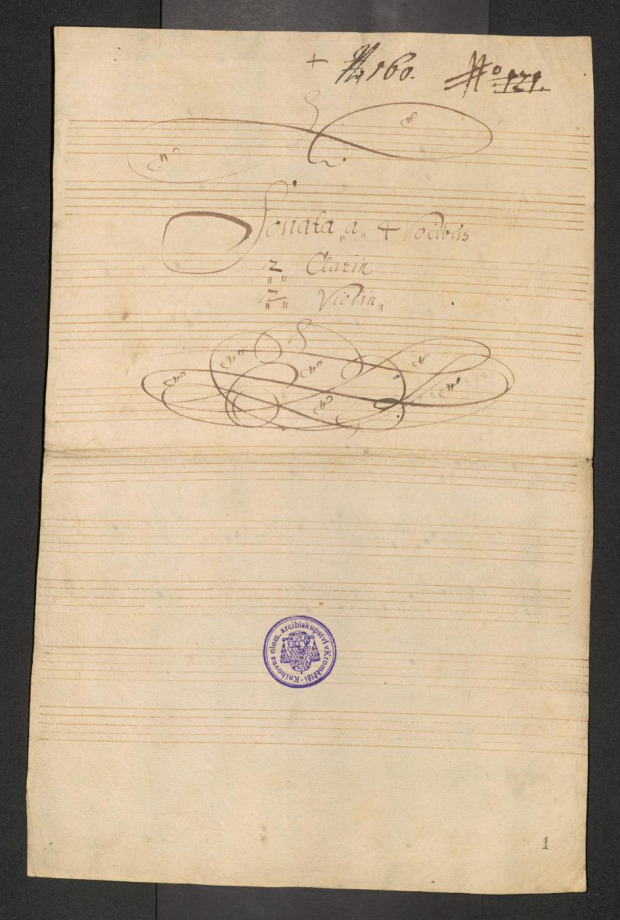 + No 160. No 171.
Sonata „a„ 4 Vocibus
2 Clarin
„ „
2 Violin„
„ „
Knihovna olom. arcibiskupství v Kroměříži
1